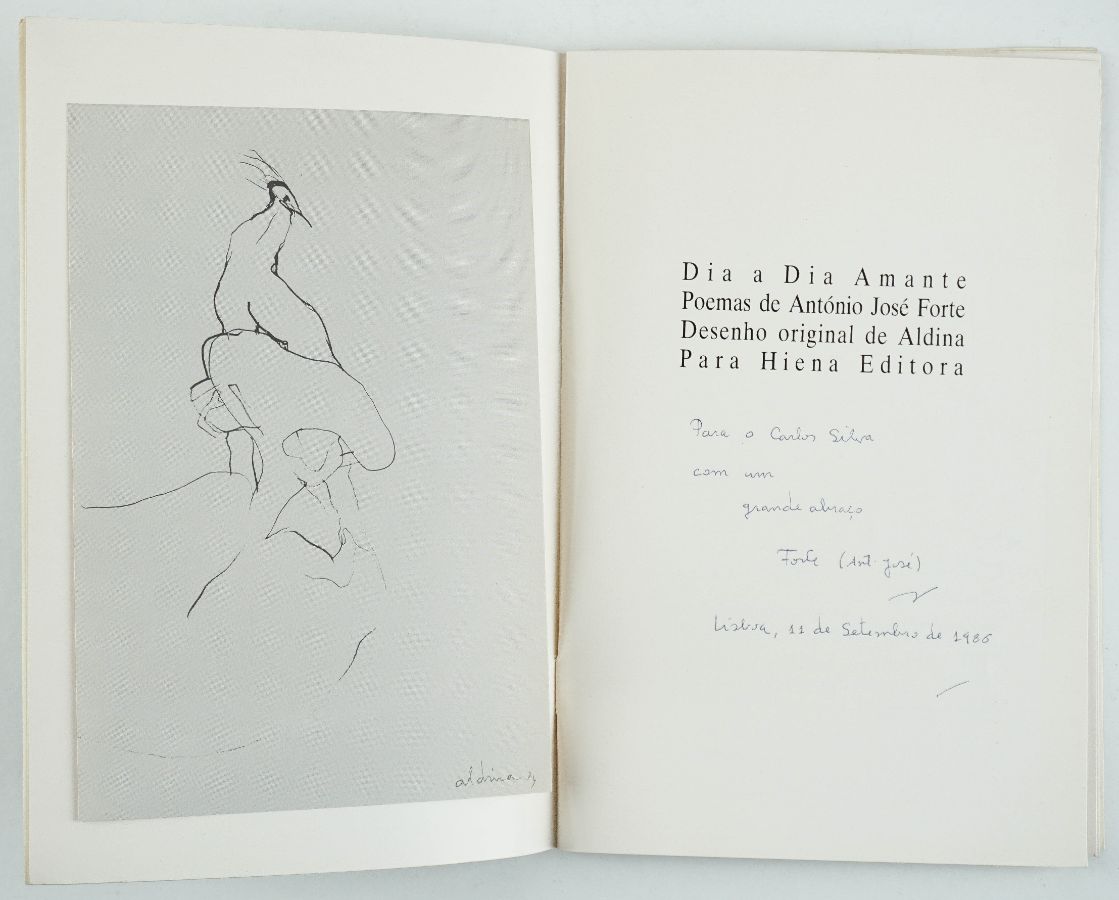 aldina
Dia a Dia Amante
Poemas de António José Forte
Desenho original de Aldina
Para Hiena Editora
Para o Carlos Silva
com um
grande abraço
Forte (Ant. José)
Lisboa, 11 de Setembro de 1986